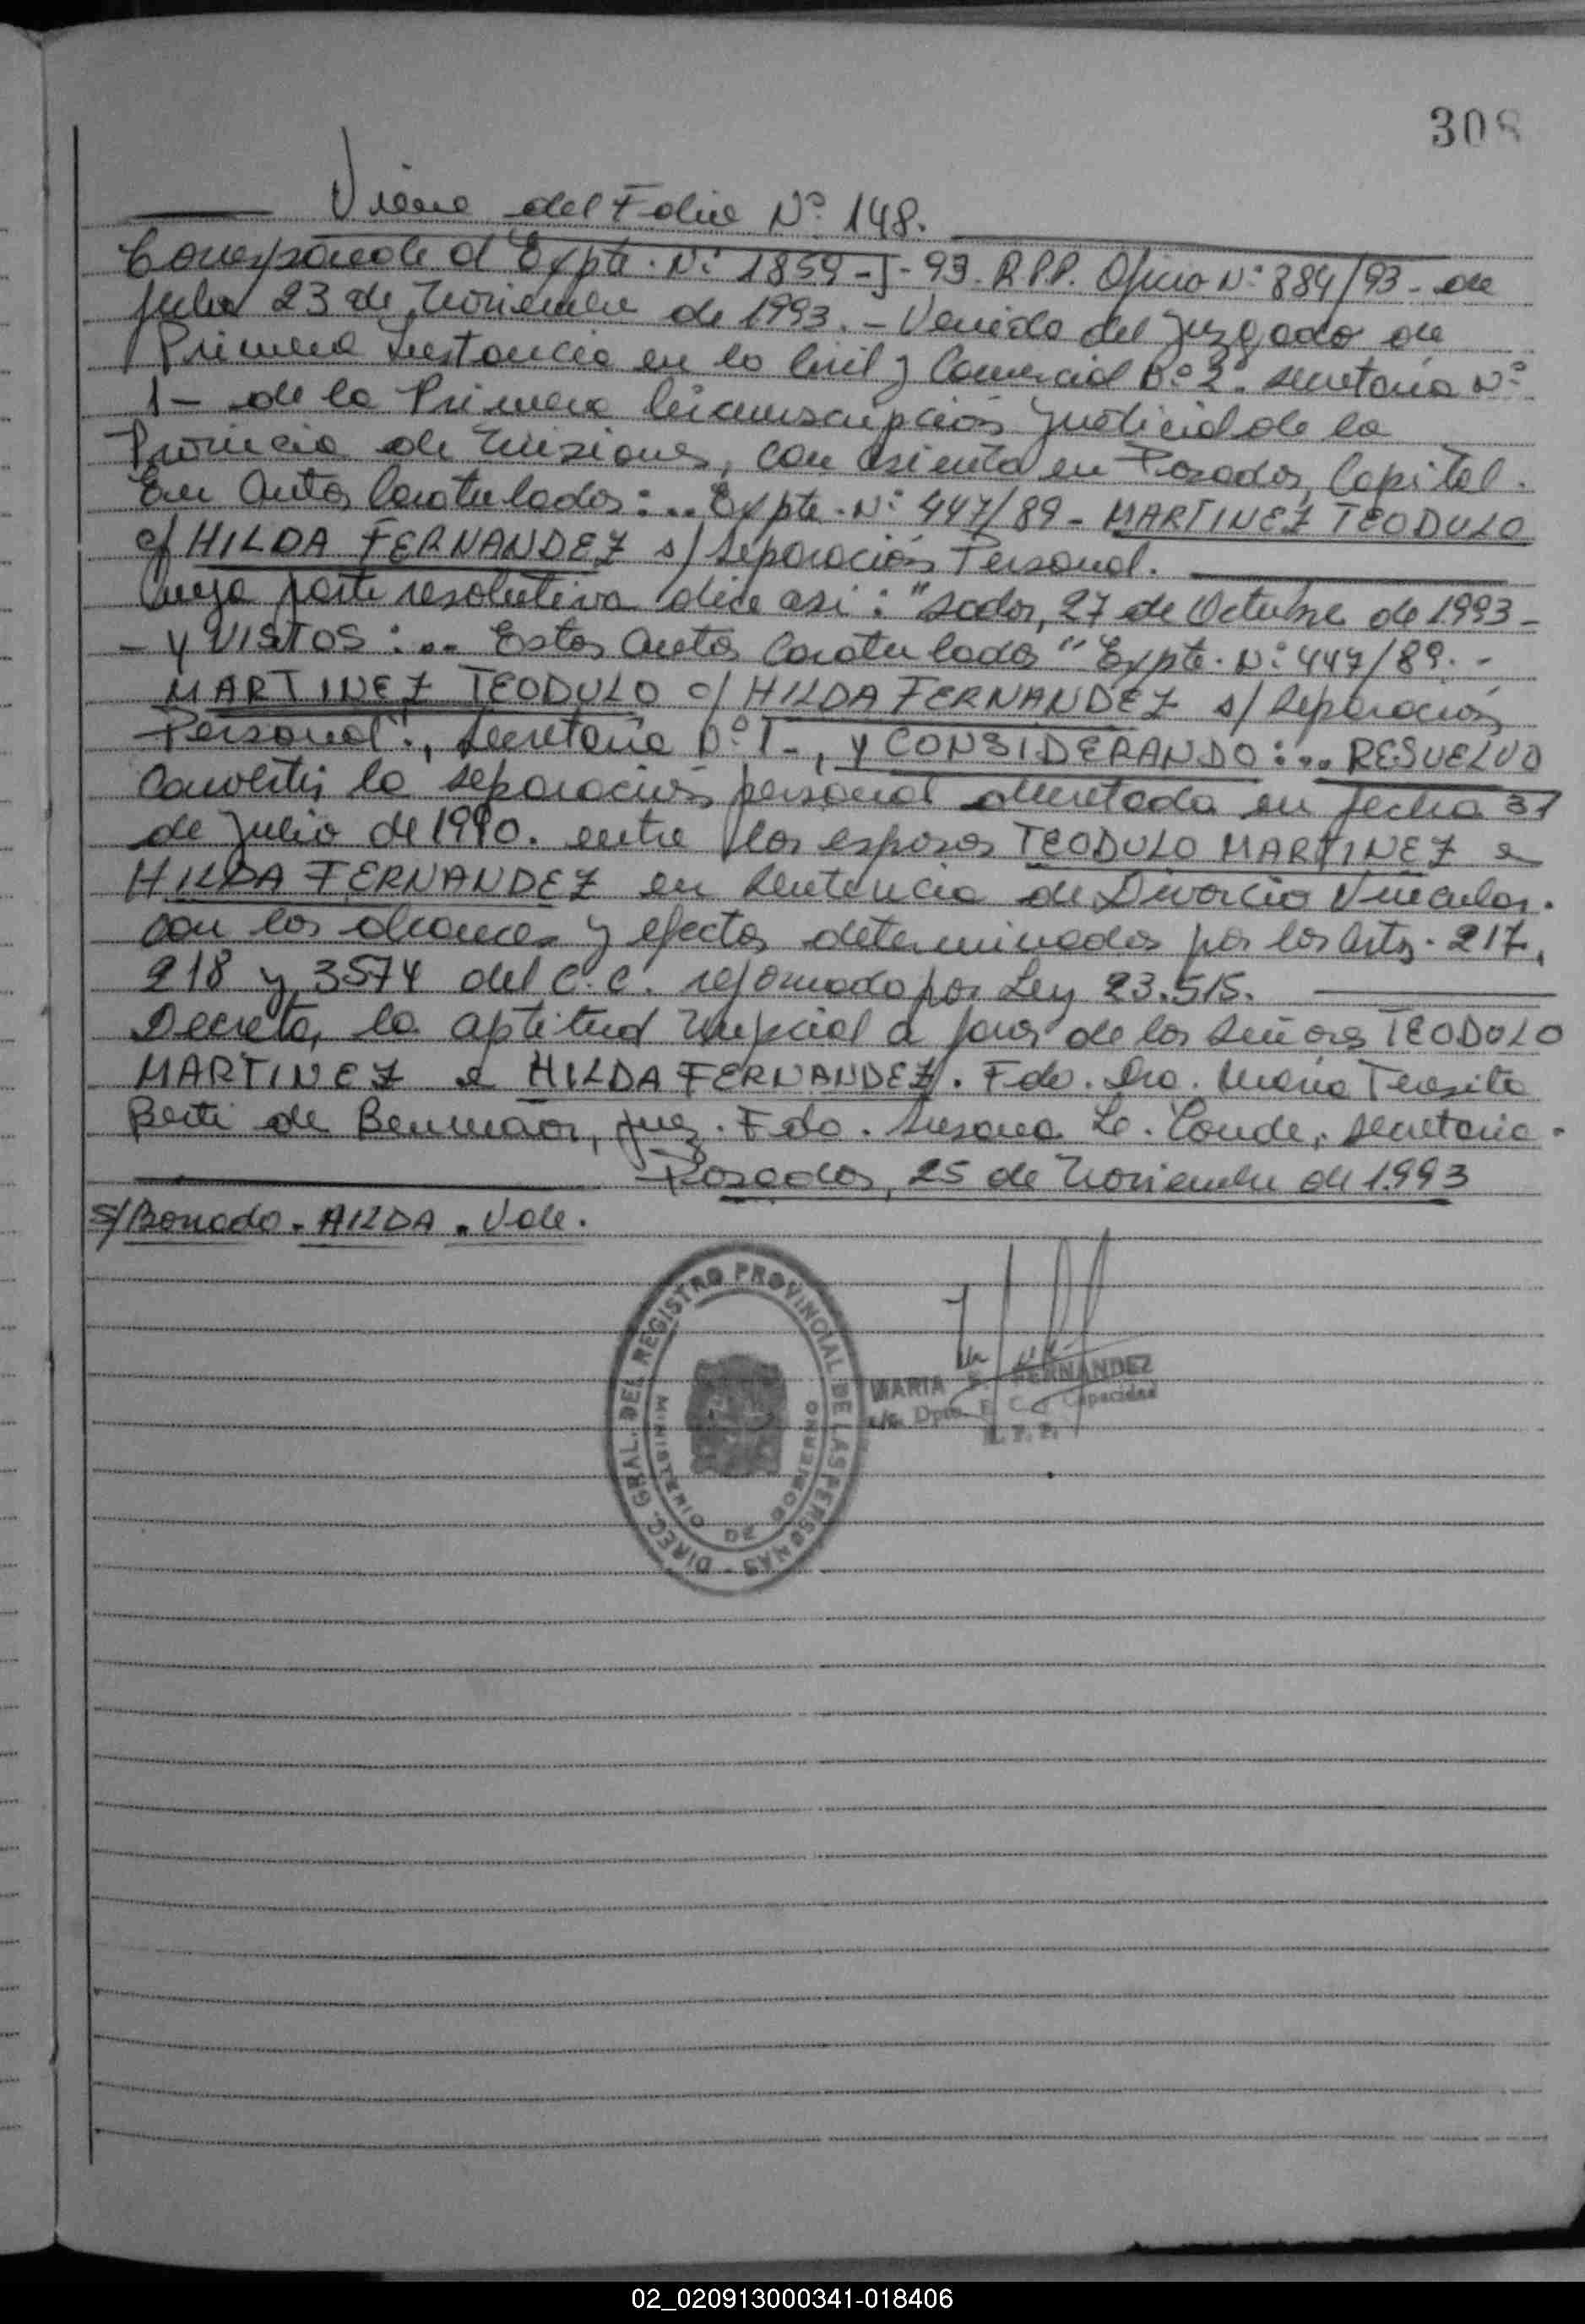 308
Viene del Folio Nº 148.
Corresponde al Expte. Nº 1859-J-93. R.P.P. Oficio Nº 884/93 - de
fecha 23 de Noviembre de 1993. - Venido del Juzgado de
Primera Instancia en lo Civil y Comercial Nº 2. secretaria Nº
1 - de la Primera Circunscripción Judicial de la
Provincia de Misiones, con asiento en Posadas, Capital.
En Autos Caratulados: .. Expte. Nº 447/89 - MARTINEZ TEODULO
c/ HILDA FERNANDEZ s/ Separación Personal.
Cuya parte resolutiva dice asi: "sadas, 27 de Octubre de 1993 -
- Y VISTOS: .. Estos autos Caratulados "Expte. Nº 447/89. -
MARTINEZ TEODULO c/ HILDA FERNANDEZ s/ Separación
Personal"., Secretaria Nº 1 -, Y CONSIDERANDO: ... RESUELVO
Convertir la separación personal decretada en fecha 31
de Julio de 1990. entre los esposos TEODULO MARTINEZ e
HILDA FERNANDEZ en Sentencia de Divorcio Vincular.
con los alcances y efectos determinados por los arts. 217,
218 y 3574 del C.C. reformado por Ley 23.515.
Decretar la aptitud Nupcial a favor de los Señores TEODULO
MARTINEZ e HILDA FERNANDEZ. Fdo. Dra. Maria Teresita
Berti de Benmaor, juez. Fdo. Susana L. Conde, secretaria.
Posadas, 25 de Noviembre de 1993
s/Borrado. HILDA. Vale.
DIREC. GRAL. DEL REGISTRO PROVINCIAL DE LAS PERSONAS -
MINISTERIO DE GOBIERNO
MARIA FERNANDEZ
Dpto. E. C. y Capacidad
R. P. P.
02_020913000341-018406